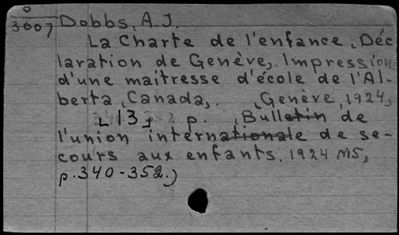 O
3607 Dobbs, A.J.
La Charte de l'enfance, Déc
laration de Genève, Impression
d'une maitresse d'école de l'Al-
berta, Canada,. (Genève, 1924,
13, p. (Bulletin de
l'union internationale de se-
cours aux enfants, 1924 No5,
p.340-352.)